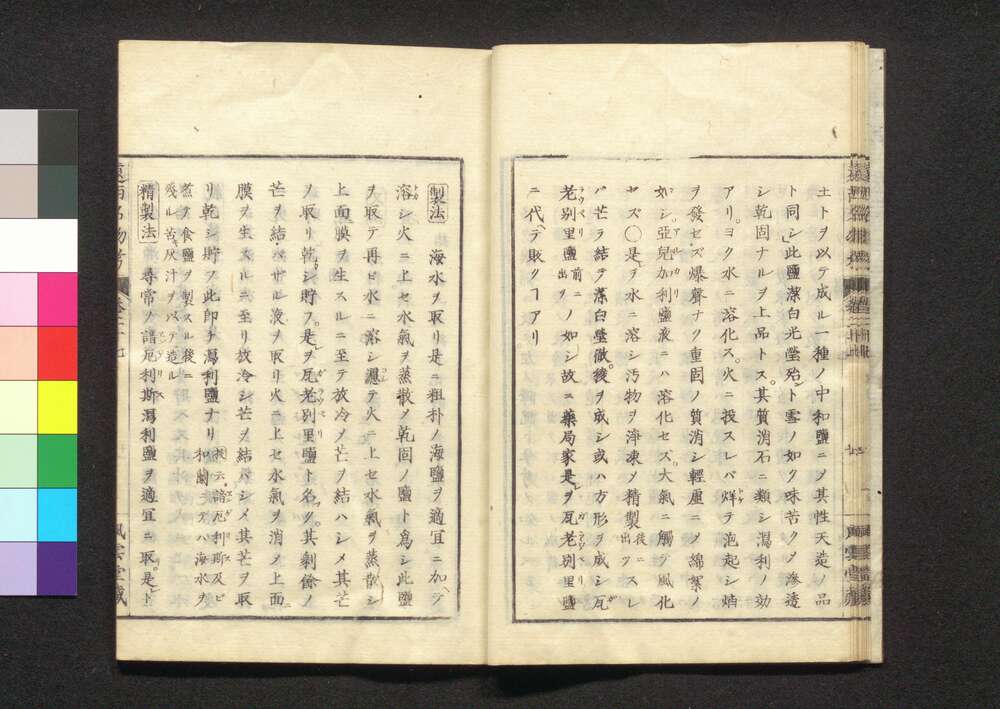 土トヲ以テ成ル一種ノ中和鹽ニノ其性天造ノ品
ト同シ此鹽潔白光瑩殆ト雪ノ如ク味苦クノ滲透
シ乾固ナルヲ上品トス其質消石ニ類シ瀉利ノ効
アリヨク水ニ溶化ス火ニ投スレバ烊テ泡起シ焇
ヲ發セズ爆聲ナク重固ノ質消シ輕虛ノ綿絮ノ
如シ亞兒加利鹽液ニハ溶化セズ大氣ニ觸テ風化
セズ〇是ヲ水ニ溶シ汚物ヲ淨凍メ精製後ニ出ツスレ
バ芒ヲ結テ潔白瑩徹後ヲ成シ或ハ方形ヲ成シ瓦
老別里鹽前ニ出ノ如シ故ニ藥局家是ヲ瓦老別里鹽
ニ代テ販クコアリ
製法 海水ヲ取リ是ニ粗朴ノ海鹽ヲ適宜ニ加テ
溶シ火ニ上セ水氣ヲ蒸散ノ乾固ノ鹽ト爲シ此鹽
ヲ取テ再ヒ水ニ溶シ濾テ火ニ上セ水氣ヲ蒸散シ
上面膜ヲ生スルニ至テ放冷ノ芒ヲ結ハシメ其芒
ヲ取リ乾シ貯フ是ヲ瓦老別里鹽ト名ク其剰餘ノ
芒ヲ結バサル液ヲ取リ火ニ上セ水氣ヲ消ノ上面
膜ヲ生スルニ至リ放冷シ芒ヲ結バシメ其芒ヲ取
リ乾シ貯フ此即チ瀉利鹽ナリ
按ニ諳厄利斯及ビ
和蘭ニテハ海水ヲ
煮ヲ食鹽ヲ製スル後ニ
殘ル苦灰汁ヲ以テ造ル
精製法 尋常ノ諳厄利斯瀉利鹽ヲ適宜ニ取是ト
風雲堂藏